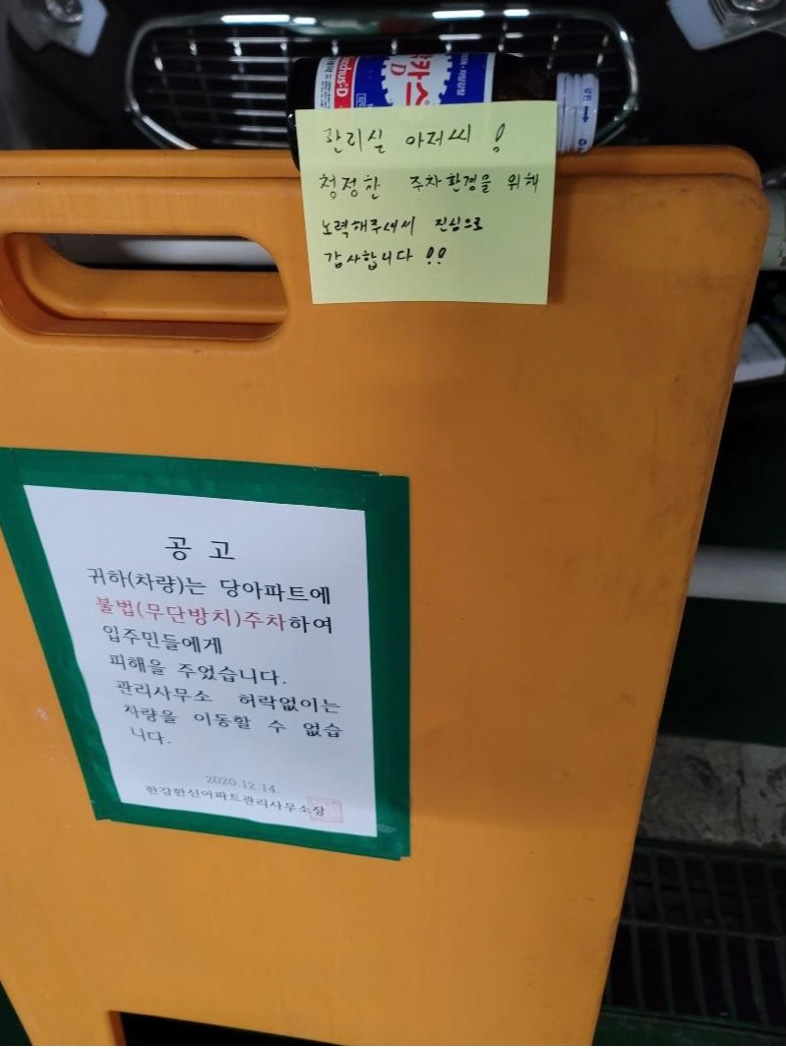 cchus-D
카스
D
관리실 아저씨 !
청정한 주차환경을 위해
노력해주셔서 진심으로
감사합니다 !!
공 고
귀하(차량)는 당아파트에
불법(무단방치)주차하여
입주민들에게
피해을 주었습니다.
관리사무소 허락없이는
차량을 이동할 수 없습
니다.
2020.12.14.
한강한신아파트관리사무소장